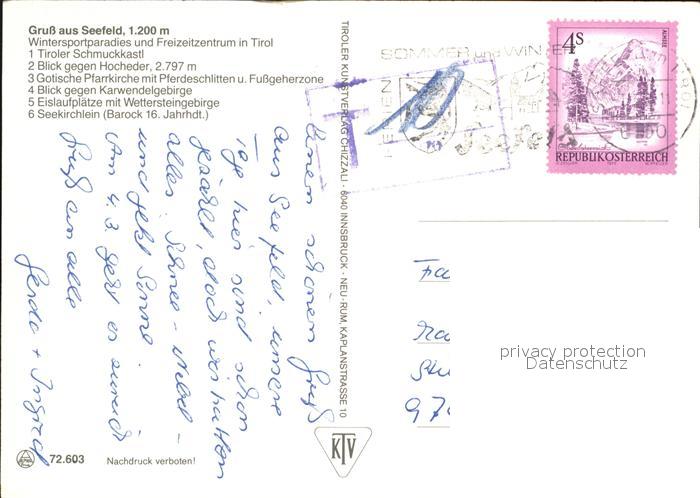 Gruß aus Seefeld, 1.200 m
Wintersportparadies und Freizeitzentrum in Tirol
1 Tiroler Schmuckkastl
2 Blick gegen Hocheder, 2.797 m
3 Gotische Pfarrkirche mit Pferdeschlitten u. Fußgeherzone
4 Blick gegen Karwendelgebirge
5 Eislaufplätze mit Wettersteingebirge
6 Seekirchlein (Barock 16. Jahrhdt.)
Einen schönen Gruß
aus Seefeld, unsere
Tage hier sind schon
gezählt, doch wir hatten
alles: Schnee - Nebel -
und jetzt Sonne.
Am 4.3. geht es zurück
Gruß an alle
Gerda + Ingrid
72.603 Nachdruck verboten!
TIROLER KUNSTVERLAG CHIZZALI · 6040 INNSBRUCK - NEU-RUM, KAPLANSTRASSE 10
KTV
SOMMER und WINTER
FERIEN
Seefeld
T
4 S
ALMSEE
REPUBLIK ÖSTERREICH
privacy protection
Datenschutz